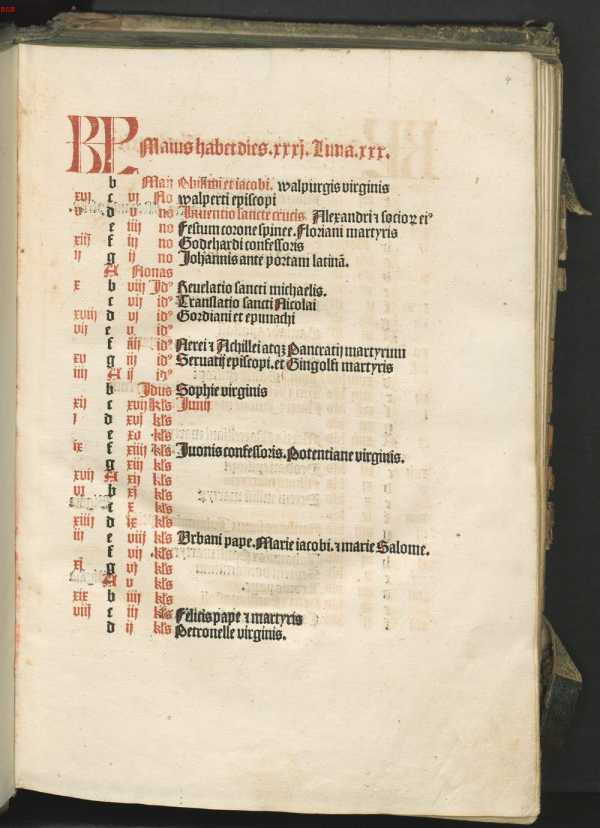 4
KL Maius habet dies .xxxj. Luna .xxx.
b Maij Philippi et iacobi. walpurgis virginis
xvj c vj No walperti episcopi
v d v no Inuentio sancte crucis. Alexandri ⁊ socioꝝ eiꝰ
e iiij no Festum corone spinee. Floriani martyris
xiij f iij no Godehardi confessoris
ij g ij no Johannis ante portam latinā.
A Nonas
x b viij Jdꝰ Reuelatio sancti michaelis.
c vij idꝰ Translatio sancti Nicolai
xviij d vj idꝰ Gordiani et epimachi
vij e v idꝰ
f iiij idꝰ Nerei ⁊ Achillei atqꝫ Pancratij martyrum
xv g iij idꝰ Seruatij episcopi. et Gingolfi martyris
iiij A ij idꝰ
b Jdus Sophie virginis
xij c xvij kl's Junij
j d xvj kl's
e xv kl's
ix f xiiij kl's Juonis confessoris. Potentiane virginis.
g xiij kl's
xvij A xij kl's
vj b xj kl's
c x kl's
xiiij d ix kl's
iij e viij kl's Urbani pape. Marie iacobi. ⁊ marie Salome.
f vij kl's
xj g vj kl's
A v kl's
xix b iiij kl's
viij c iij kl's Felicis pape ⁊ martyris
d ij kl's Petronelle virginis.